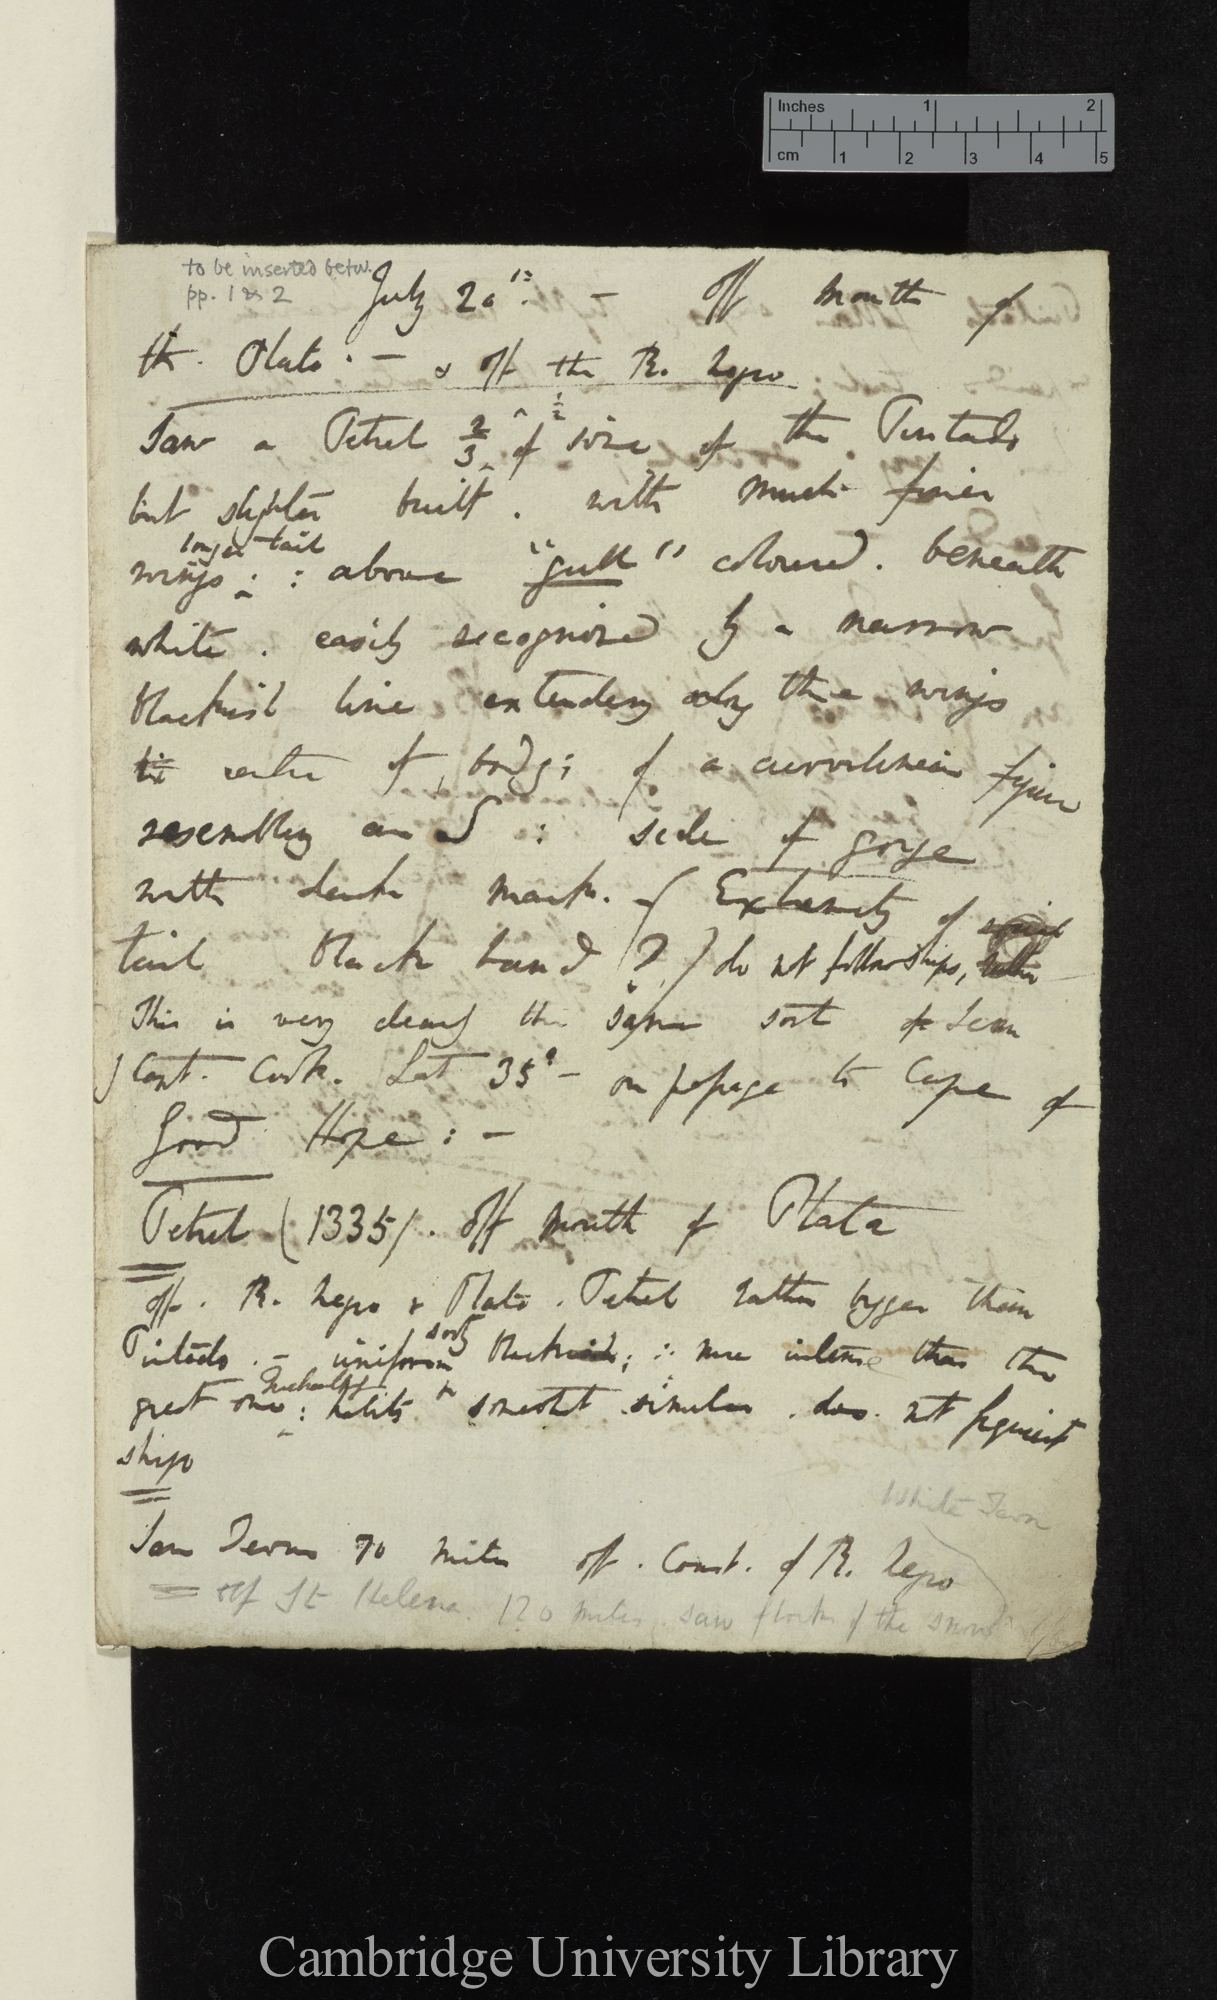 Inches 1 2
cm 1 2 3 4 5
to be inserted betw.
pp. 1 & 2
July 20th. — off mouth of
the. Plata. — & off the R. Negro
Saw a Petrel 2/3 ^ 1/2 of size of the Pintado
but slighter built. with much finer
longer tail
wings ; : above "gull" coloured. beneath
white. easily recognized by a narrow
blackish line extending along the wings
to centre of body; of a curvilinear figure
resembling an S : side of gorge
with dark mark. — ( Extremity of
tail black band (?) ) do not follow ships,
This is very clearly the same sort seen
by Capt. Cook. Lat 35° — on passage to Cape of
Good Hope : —
Petrel (1335). off mouth of Plata
off. R. Negro & Plata. Petrel rather bigger than
Pintado. — uniform sooty black; : more intense than the
great one : habits somewhat similar. does not frequent
ships
White Tern
Saw Terns 70 miles off. Coast. of R. Negro
= off St Helena. 120 miles. saw flocks of the snow
Cambridge University Library